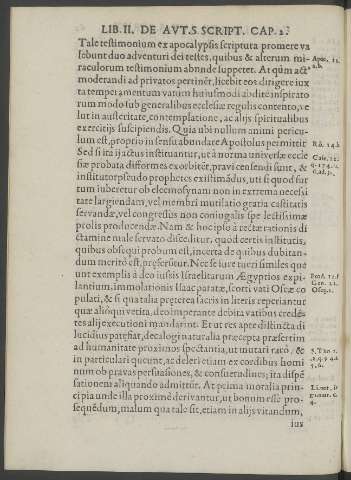 LIB. II. DE AVT. S. SCRIPT. CAP. 2.
Tale testimonium ex apocalypsis scriptura promere va
lebunt duo adventuri dei testes, quibus & alterum mi-
raculorum testimonium abunde suppetet. At qum act
moderandi ad privatos pertinēt, licebit eos dirigere iux
ta temperamentum vatum huiusmodi abditè inspirato
rum modo sub generalibus ecclesiæ regulis contento, ve
lut in austeritate, contemplatione, ac alijs spiritualibus
exercitijs suscipiendis. Quia ubi nullum animi pericu-
lum est, proprio in sensu abundare Apostolus permittit
Sed si ita ij actus instituantur, ut à norma universæ eccle
siæ probata difformes exorbitēt, pravi censendi sunt, &
institutor pseudo prophetes existimādus, uti si quod fur
tum iuberetur ob eleemosynam non in extrema necessi
tate largiendam, vel membri mutilatio gratia castitatis
servandæ, vel congressus non coniugalis spe lectissimæ
prolis producendæ. Nam & hoc ipso à rectæ rationis di
ctamine male servato disceditur, quod certis institutis,
quibus obsequi probum est, incerta de quibus dubitan-
dum meritò est, præferuntur. Nec se iure tueri similes que
unt exemplis à deo iussis Israelitarum Ægyptios expi
lantium, immolationis Isaac paratæ, scorti vati Oseæ co
pulati, & si qua talia præterea sacris in literis reperiantur
quæ alióqui vetita, deo imperante debita vatibus credēs
tes alij executioni mandarint. Et ut res apte distincta di
lucidius pateſiat, decalogi naturalia præcepta præsertim
ad humanitate proximos spectantia, ut mutari rarò, &
in particulari queunt, ac deleri etiam ex cordibus homi
num ob pravas persuasiones, & consuetudines; ita dispē
sationem aliquando admittūt. At prima moralia prin-
cipia unde illa proximè derivantur, ut bonum esse pro-
sequēdum, malum qua tale sit, etiam in alijs vitandum,
ius
Apoc. 11.
Ro. 14.b
Exod. 12.f
Gen. 22.
Oseę. 1.